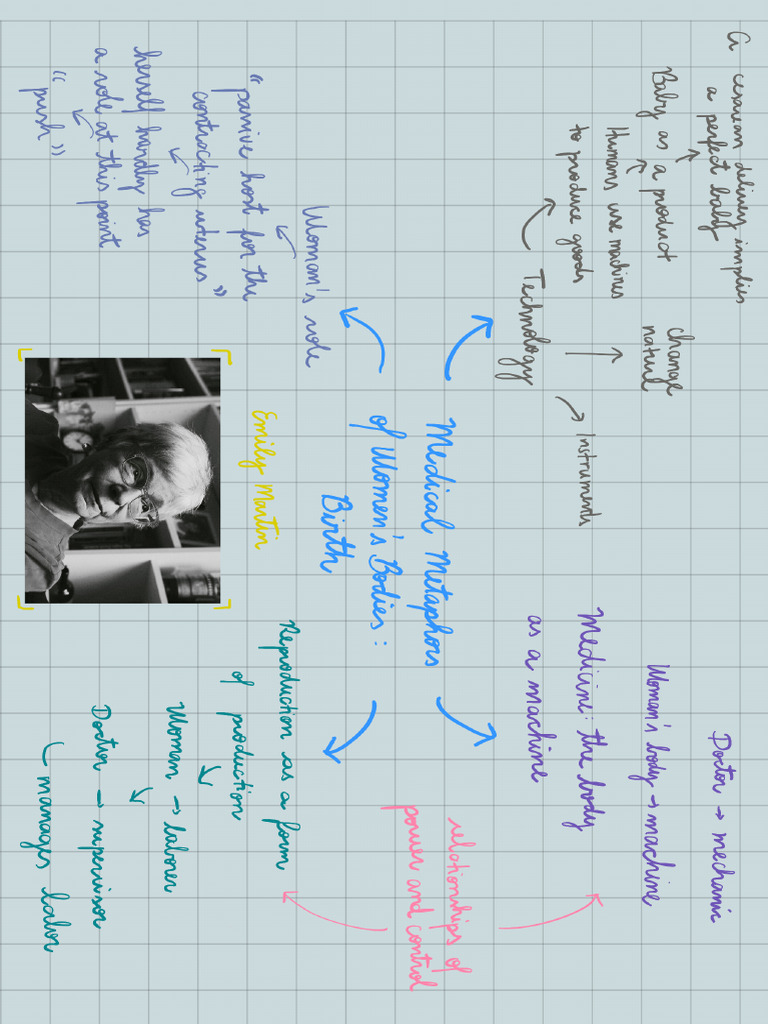 Medical Metaphors
of Women's Bodies:
Birth
Emily Martin
Technology
Humans use machines
to produce goods
Baby as a product
A cesarean delivery implies
a perfect baby
change
nature
Instruments
Medicine: the body
as a machine
Women's body → machine
Doctor → mechanic
Woman's role
"passive host for the
contracting uterus"
herself hardly has
a role at this point
"push"
Reproduction as a form
of production
Woman → laborer
Doctor → supervisor
manages labor
relationships of
power and control